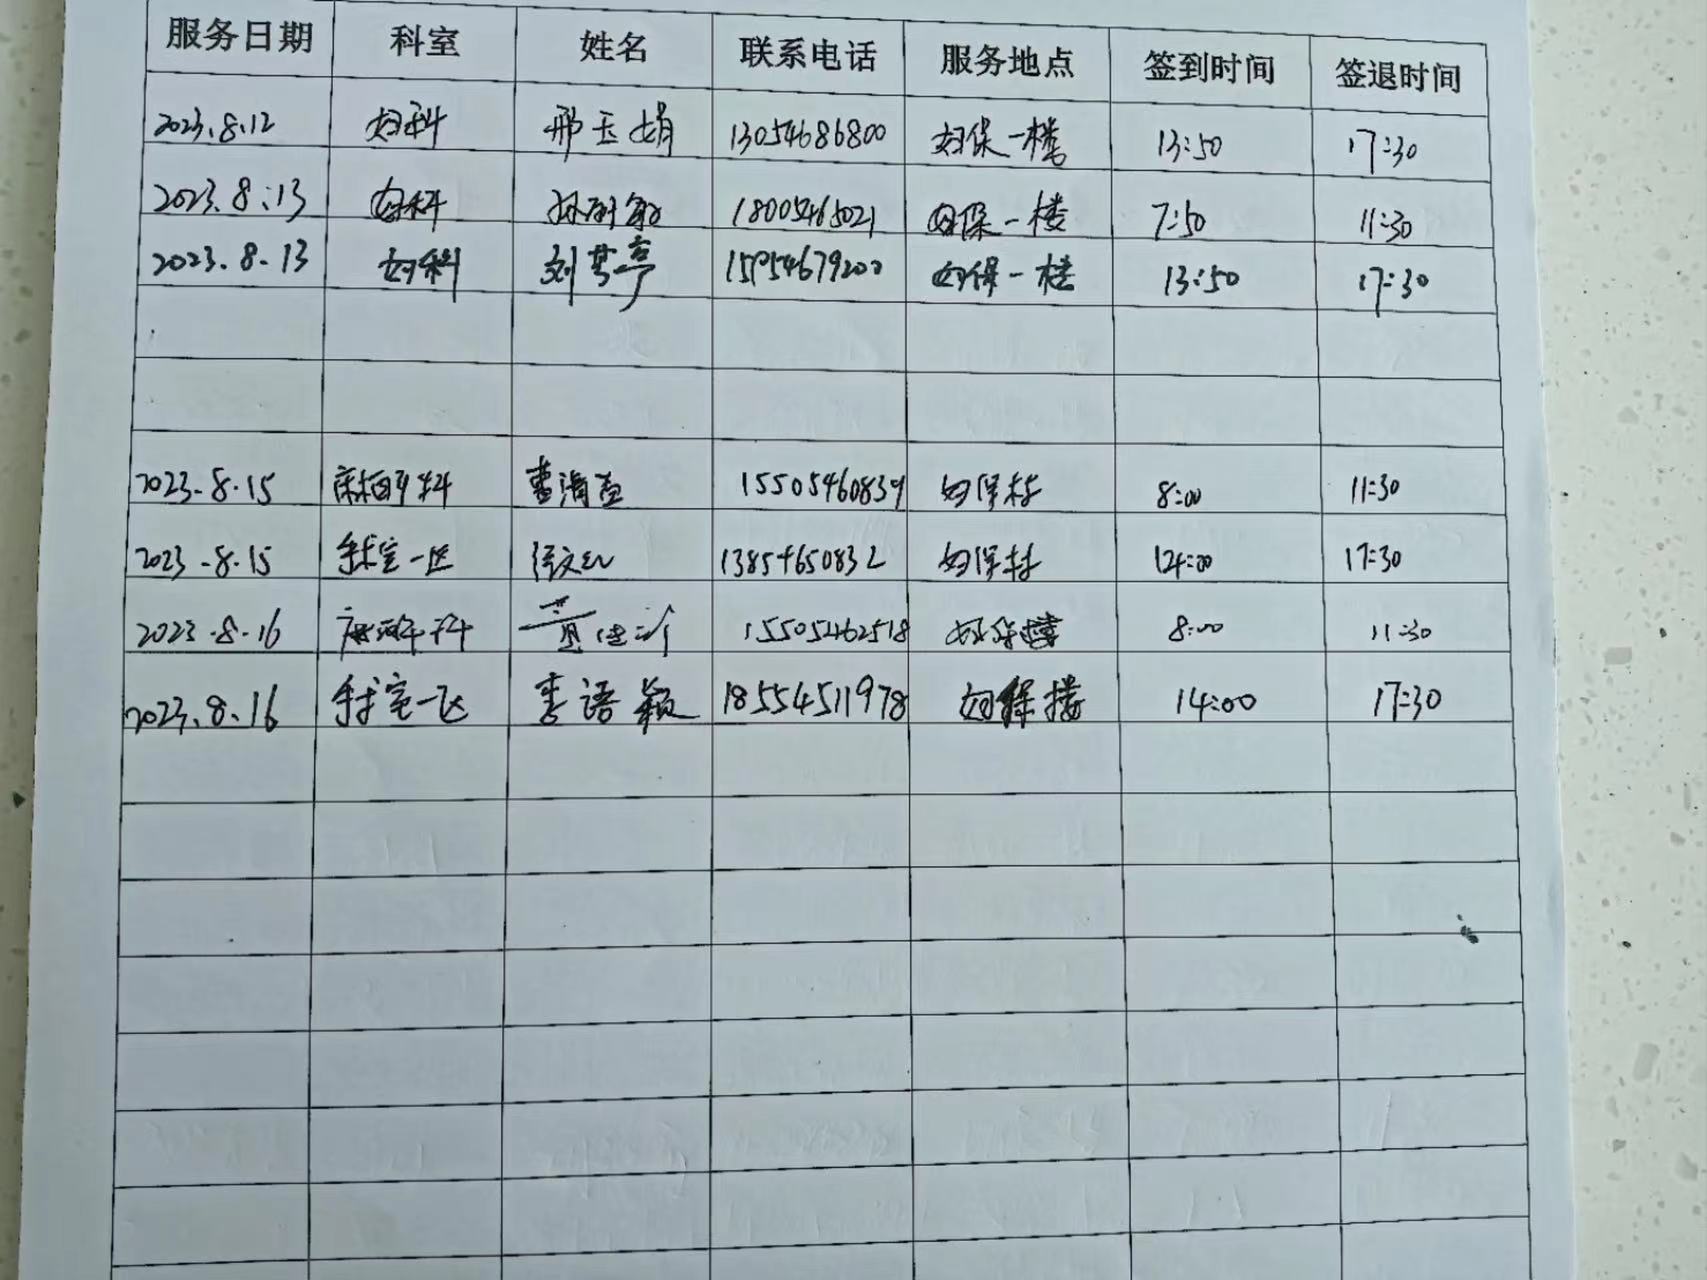 服务日期 科室 姓名 联系电话 服务地点 签到时间 签退时间
2023.8.12 妇科 邢玉娟 13054686800 妇保一楼 13:50 17:30
2023.8.13 妇科 18005465021 妇保一楼 7:50 11:30
2023.8.13 妇科 刘梦亭 15954679200 妇保一楼 13:50 17:30
2023.8.15 曹海燕 15505460839 妇保楼 8:00 11:30
2023.8.15 手术室一区 徐文红 13854650832 妇保楼 17:30
2023.8.16 15505462518 妇保楼 8:00 11:30
2023.8.16 手术室一区 李语颖 18554511978 妇保楼 14:00 17:30